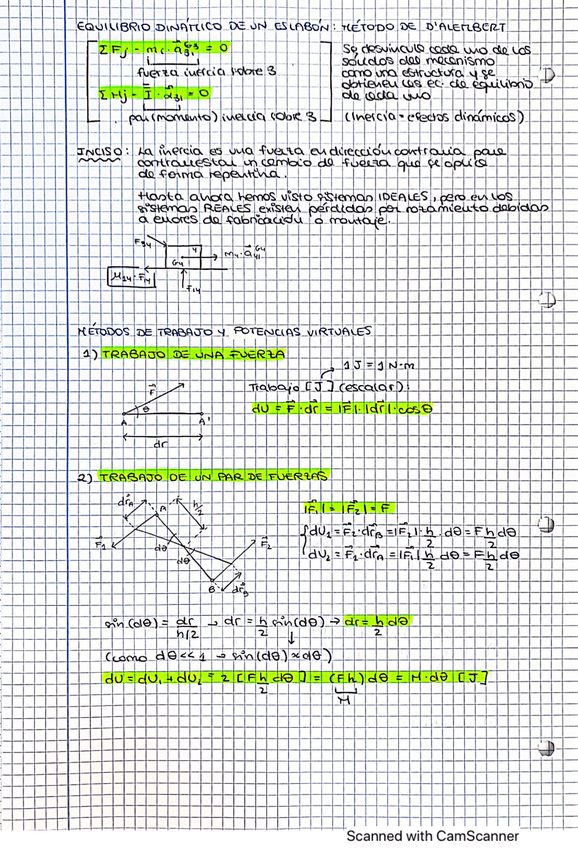 EQUILIBRIO DINÁMICO DE UN ESLABÓN: MÉTODO DE D'ALEMBERT
ΣFj - mi · a = 0
fuerza inercia sobre 3
ΣMj - I · α31 = 0
par (momento) inercia sobre 3
Se desvincula cada uno de los
sólidos del mecanismo
como una estructura y se
obtienen las ec. de equilibrio
de cada uno
(Inercia = efectos dinámicos)
INCISO: La inercia es una fuerza en dirección contraria para
contrarrestar un cambio de fuerza que se aplica
de forma repentina.
Hasta ahora hemos visto sistemas IDEALES, pero en los
sistemas REALES existen pérdidas por rozamiento debidas
a errores de fabricación o montaje.
F34
4
G4
m4 · a41^G4
μ14 · F14
F14
MÉTODOS DE TRABAJO Y POTENCIAS VIRTUALES
1) TRABAJO DE UNA FUERZA
1 J = 1 N·m
Trabajo [J] (escalar):
dU = F · dr = |F| · |dr| · cosθ
F
θ
A
A'
dr
2) TRABAJO DE UN PAR DE FUERZAS
drA
A
h/2
F1
F2
dθ
dθ
B
drB
|F1| = |F2| = F
dU1 = F2 · drB = |F2| · h/2 · dθ = F h/2 dθ
dU2 = F1 · drA = |F1| h/2 dθ = F h/2 dθ
sin(dθ) = dr/h/2 → dr = h/2 sin(dθ) → dr = h/2 dθ
(como dθ << 1 → sin(dθ) ≈ dθ)
dU = dU1 + dU2 = 2 [F h/2 dθ] = (Fh) dθ = M · dθ [J]
M
Scanned with CamScanner